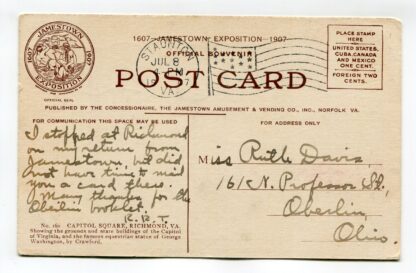 1607-JAMESTOWN EXPOSITION-1907
OFFICIAL SOUVENIR
JAMESTOWN
1607 1907
EXPOSITION
OFFICIAL SEAL
STAUNTON
JUL 8
PM
VA.
POST CARD
PLACE STAMP
HERE
UNITED STATES,
CUBA, CANADA
AND MEXICO
ONE CENT.
FOREIGN TWO
CENTS.
PUBLISHED BY THE CONCESSIONAIRE, THE JAMESTOWN AMUSEMENT & VENDING CO., INC., NORFOLK VA.
FOR COMMUNICATION THIS SPACE MAY BE USED
FOR ADDRESS ONLY
I stopped at Richmond
on my return from
Jamestown, but did
not have time to mail
you a card there.
Many thanks for the
Oberlin booklet!
R.R.T.
Miss Ruth Davis,
161 N. Professor St,
Oberlin,
Ohio.
CAPITOL SQUARE, RICHMOND, VA.
Showing the grounds and state buildings of the Capitol
of Virginia, and the famous equestrian statue of George
Washington, by Crawford.